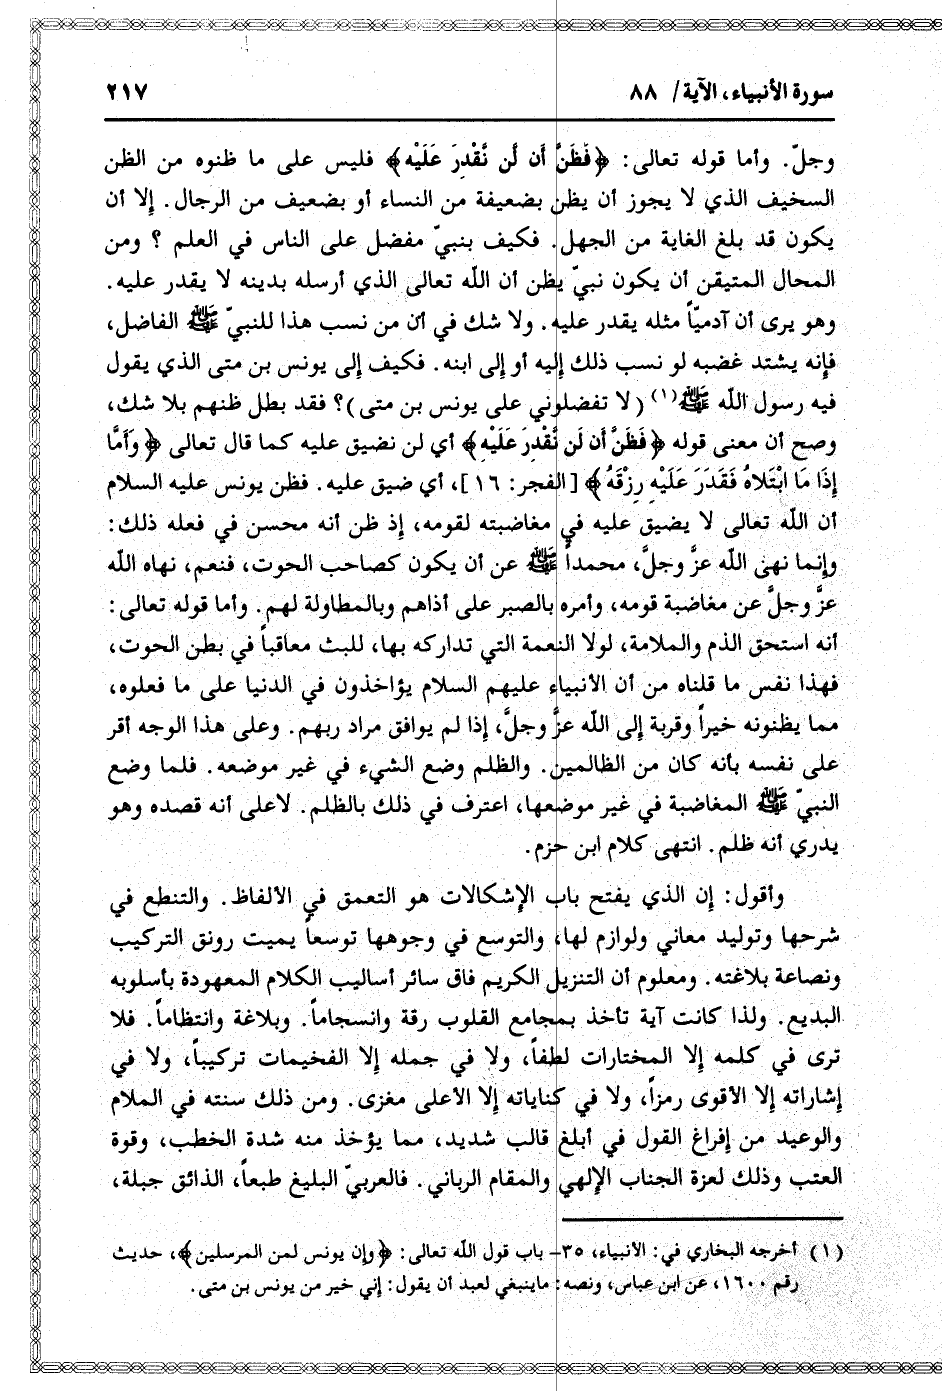 سورة الأنبياء، الآية/ ٨٨ ٢١٧
وجلّ. وأما قوله تعالى: ﴿فَظَنَّ أَن لَّن نَّقْدِرَ عَلَيْهِ﴾ فليس على ما ظنوه من الظن
السخيف الذي لا يجوز أن يظن بضعيفة من النساء أو بضعيف من الرجال. إلا أن
يكون قد بلغ الغاية من الجهل. فكيف بنبيّ مفضل على الناس في العلم ؟ ومن
المحال المتيقن أن يكون نبيّ يظن أن اللّه تعالى الذي أرسله بدينه لا يقدر عليه.
وهو يرى أن آدميّاً مثله يقدر عليه. ولا شك في أن من نسب هذا للنبيّ ﷺ الفاضل،
فإنه يشتد غضبه لو نسب ذلك إليه أو إلى ابنه. فكيف إلى يونس بن متى الذي يقول
فيه رسول اللّه ﷺ(١) (لا تفضلوني على يونس بن متى)؟ فقد بطل ظنهم بلا شك،
وصح أن معنى قوله ﴿فَظَنَّ أَن لَن نَّقْدِرَ عَلَيْهِ﴾ أي لن نضيق عليه كما قال تعالى ﴿وَأَمَّا
إِذَا مَا ابْتَلاهُ فَقَدَرَ عَلَيْهِ رِزْقَهُ﴾ [الفجر: ١٦]، أي ضيق عليه. فظن يونس عليه السلام
أن اللّه تعالى لا يضيق عليه في مغاضبته لقومه، إذ ظن أنه محسن في فعله ذلك:
وإنما نهى اللّه عزَّ وجلَّ، محمداً ﷺ عن أن يكون كصاحب الحوت، فنعم، نهاه اللّه
عزَّ وجلَّ عن مغاضبة قومه، وأمره بالصبر على أذاهم وبالمطاولة لهم. وأما قوله تعالى:
أنه استحق الذم والملامة، لولا النعمة التي تداركه بها، للبث معاقباً في بطن الحوت،
فهذا نفس ما قلناه من أن الأنبياء عليهم السلام يؤاخذون في الدنيا على ما فعلوه،
مما يظنونه خيراً وقربة إلى اللّه عزَّ وجلَّ، إذا لم يوافق مراد ربهم. وعلى هذا الوجه أقر
على نفسه بأنه كان من الظالمين. والظلم وضع الشيء في غير موضعه. فلما وضع
النبيّ ﷺ المغاضبة في غير موضعها، اعترف في ذلك بالظلم. لاعلى أنه قصده وهو
يدري أنه ظلم. انتهى كلام ابن حزم.
وأقول: إن الذي يفتح باب الإشكالات هو التعمق في الألفاظ. والتنطع في
شرحها وتوليد معاني ولوازم لها، والتوسع في وجوهها توسعاً يميت رونق التركيب
ونصاعة بلاغته. ومعلوم أن التنزيل الكريم فاق سائر أساليب الكلام المعهودة بأسلوبه
البديع. ولذا كانت آية تأخذ بمجامع القلوب رقة وانسجاماً. وبلاغة وانتظاماً. فلا
ترى في كلمه إلا المختارات لطفاً، ولا في جمله إلا الفخيمات تركيباً، ولا في
إشاراته إلا الأقوى رمزاً، ولا في كناياته إلا الأعلى مغزى. ومن ذلك سنته في الملام
والوعيد من إفراغ القول في أبلغ قالب شديد، مما يؤخذ منه شدة الخطب، وقوة
العتب وذلك لعزة الجناب الإلهي والمقام الرباني. فالعربيّ البليغ طبعاً، الذائق جبلة،
(١) أخرجه البخاري في: الأنبياء، ٣٥- باب قول اللّه تعالى: ﴿وإن يونس لمن المرسلين﴾، حديث
رقم ١٦٠٠، عن ابن عباس، ونصه: ماينبغي لعبد أن يقول: إني خير من يونس بن متى.